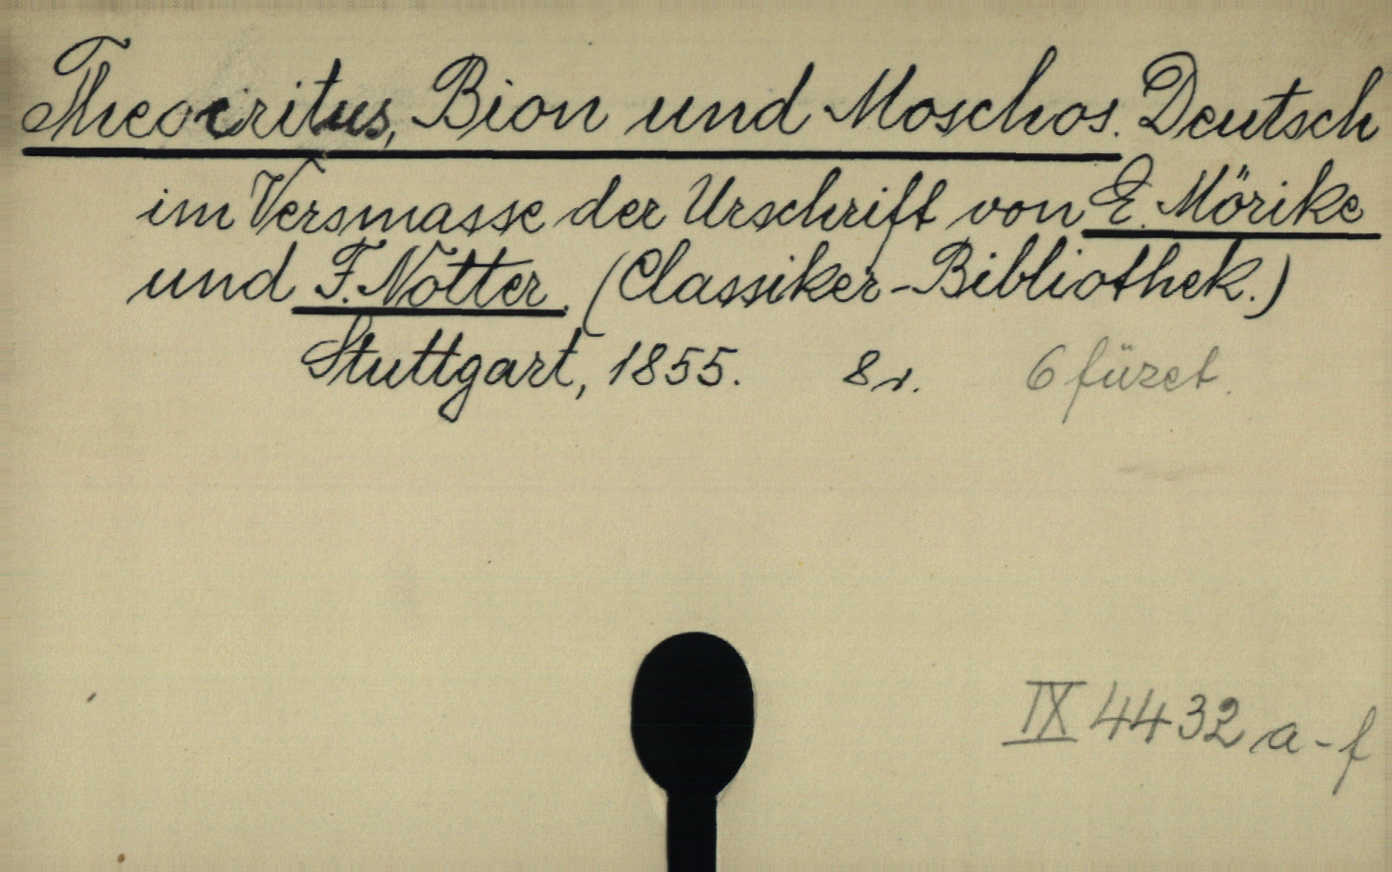 Theocritus, Bion und Moschos. Deutsch
im Versmasse der Urschrift von E. Mörike
und F. Notter. (Classiker-Bibliothek.)
Stuttgart, 1855. 8r. 6 füzet.
IX 4432 a-f